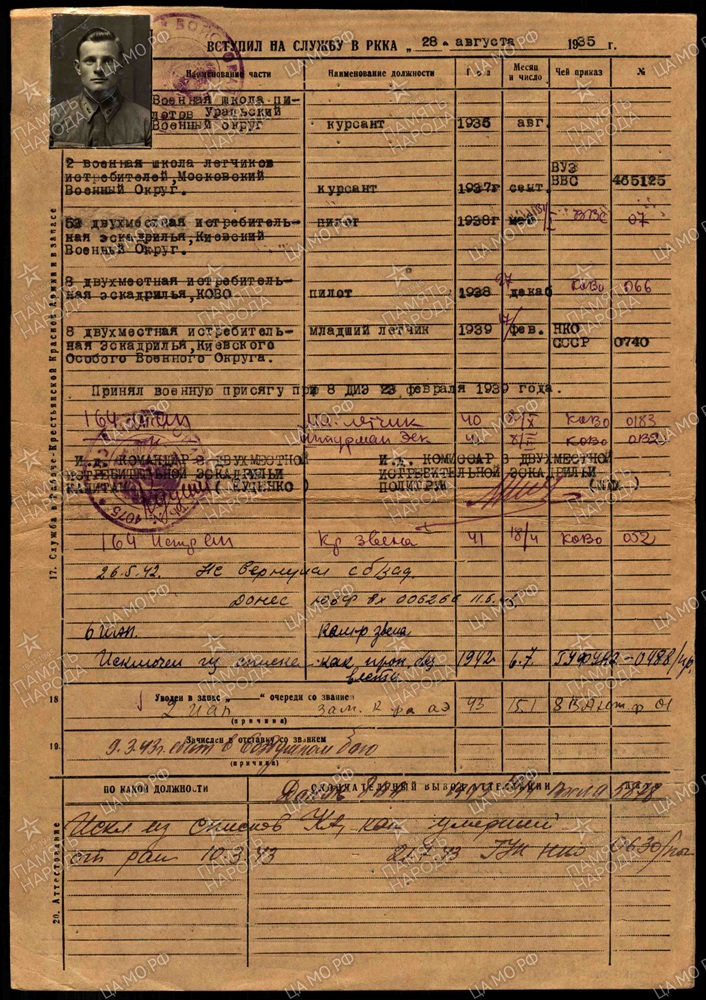 ВСТУПИЛ НА СЛУЖБУ В РККА „ 28 " августа 1935 г.
Наименование части Наименование должности Год Месяц и число Чей приказ №
Военная школа пи-
лотов Уральский
Военный округ курсант 1935 авг.
2 военная школа летчиков
истребителей, Московский
Военный Округ. курсант 1937г сент. ВУЗ ВВС 465125
53 двухместная истребитель-
ная эскадрилья, Киевский
Военный Округ. пилот 1938г ВВС 07
8 двухместная истребитель-
ная эскадрилья, КОВО пилот 1938 27 декаб КОВО 066
8 двухместная истребитель-
ная эскадрилья, Киевского
Особого Военного Округа. младший летчик 1939 17/ фев. НКО СССР 0740
Принял военную присягу при 8 ДИЭ 23 февраля 1939 года.
164 Мл. летчик 40 /X КОВО 0183
Штурман Эск КОВО
И.Д. КОМАНДИР 8 ДВУХМЕСТНОЙ
ИСТРЕБИТЕЛЬНОЙ ЭСКАДРИЛЬИ
КАПИТАН (КУЦЕНКО)
И.Д. КОМИССАР 8 ДВУХМЕСТНОЙ
ИСТРЕБИТЕЛЬНОЙ ЭСКАДРИЛЬИ
ПОЛИТРУК
164 Истр ап Кр звена 41 18/4 КОВО 052
26.5.42. Не вернулся с б/зад.
Донес ЮВФ вх 006266
6 ИАП. Ком-р звена
Исключен из списка как проп. без вести 1942 6.7. ГУФУКА-0488/
17. Служба в Рабоче-Крестьянской Красной Армии и в запасе
18 Уволен в запас „ " очереди со званием
(причина)
2 иап Зам. к-ра аэ 43 15.1 8 ВА
19. Зачислен в отставку со званием
(причина)
9.3.43г. в воздушном бою
ПО КАКОЙ ДОЛЖНОСТИ ОКОНЧАТЕЛЬНЫЙ ВЫВОД АТТЕСТАЦИИ
Искл из списков КА, как умерший
от ран 10.3.43 ГУК НКО 0630/
20. Аттестование
ПАМЯТЬ НАРОДА
ЦАМО.РФ